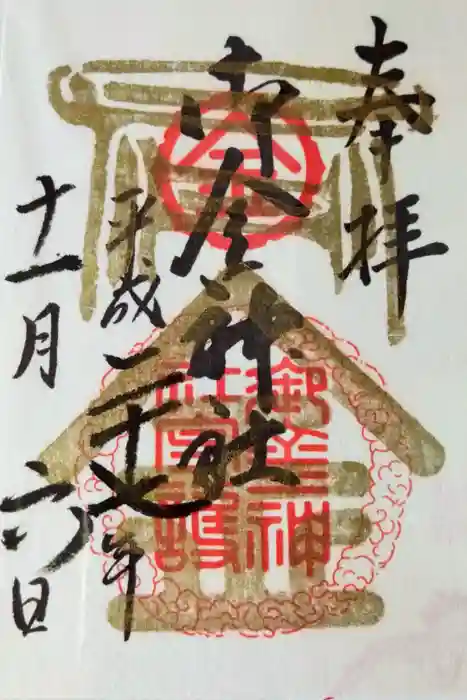 奉拝
御金神社
平成二十七年
十一月六日
金
御金神
社守護